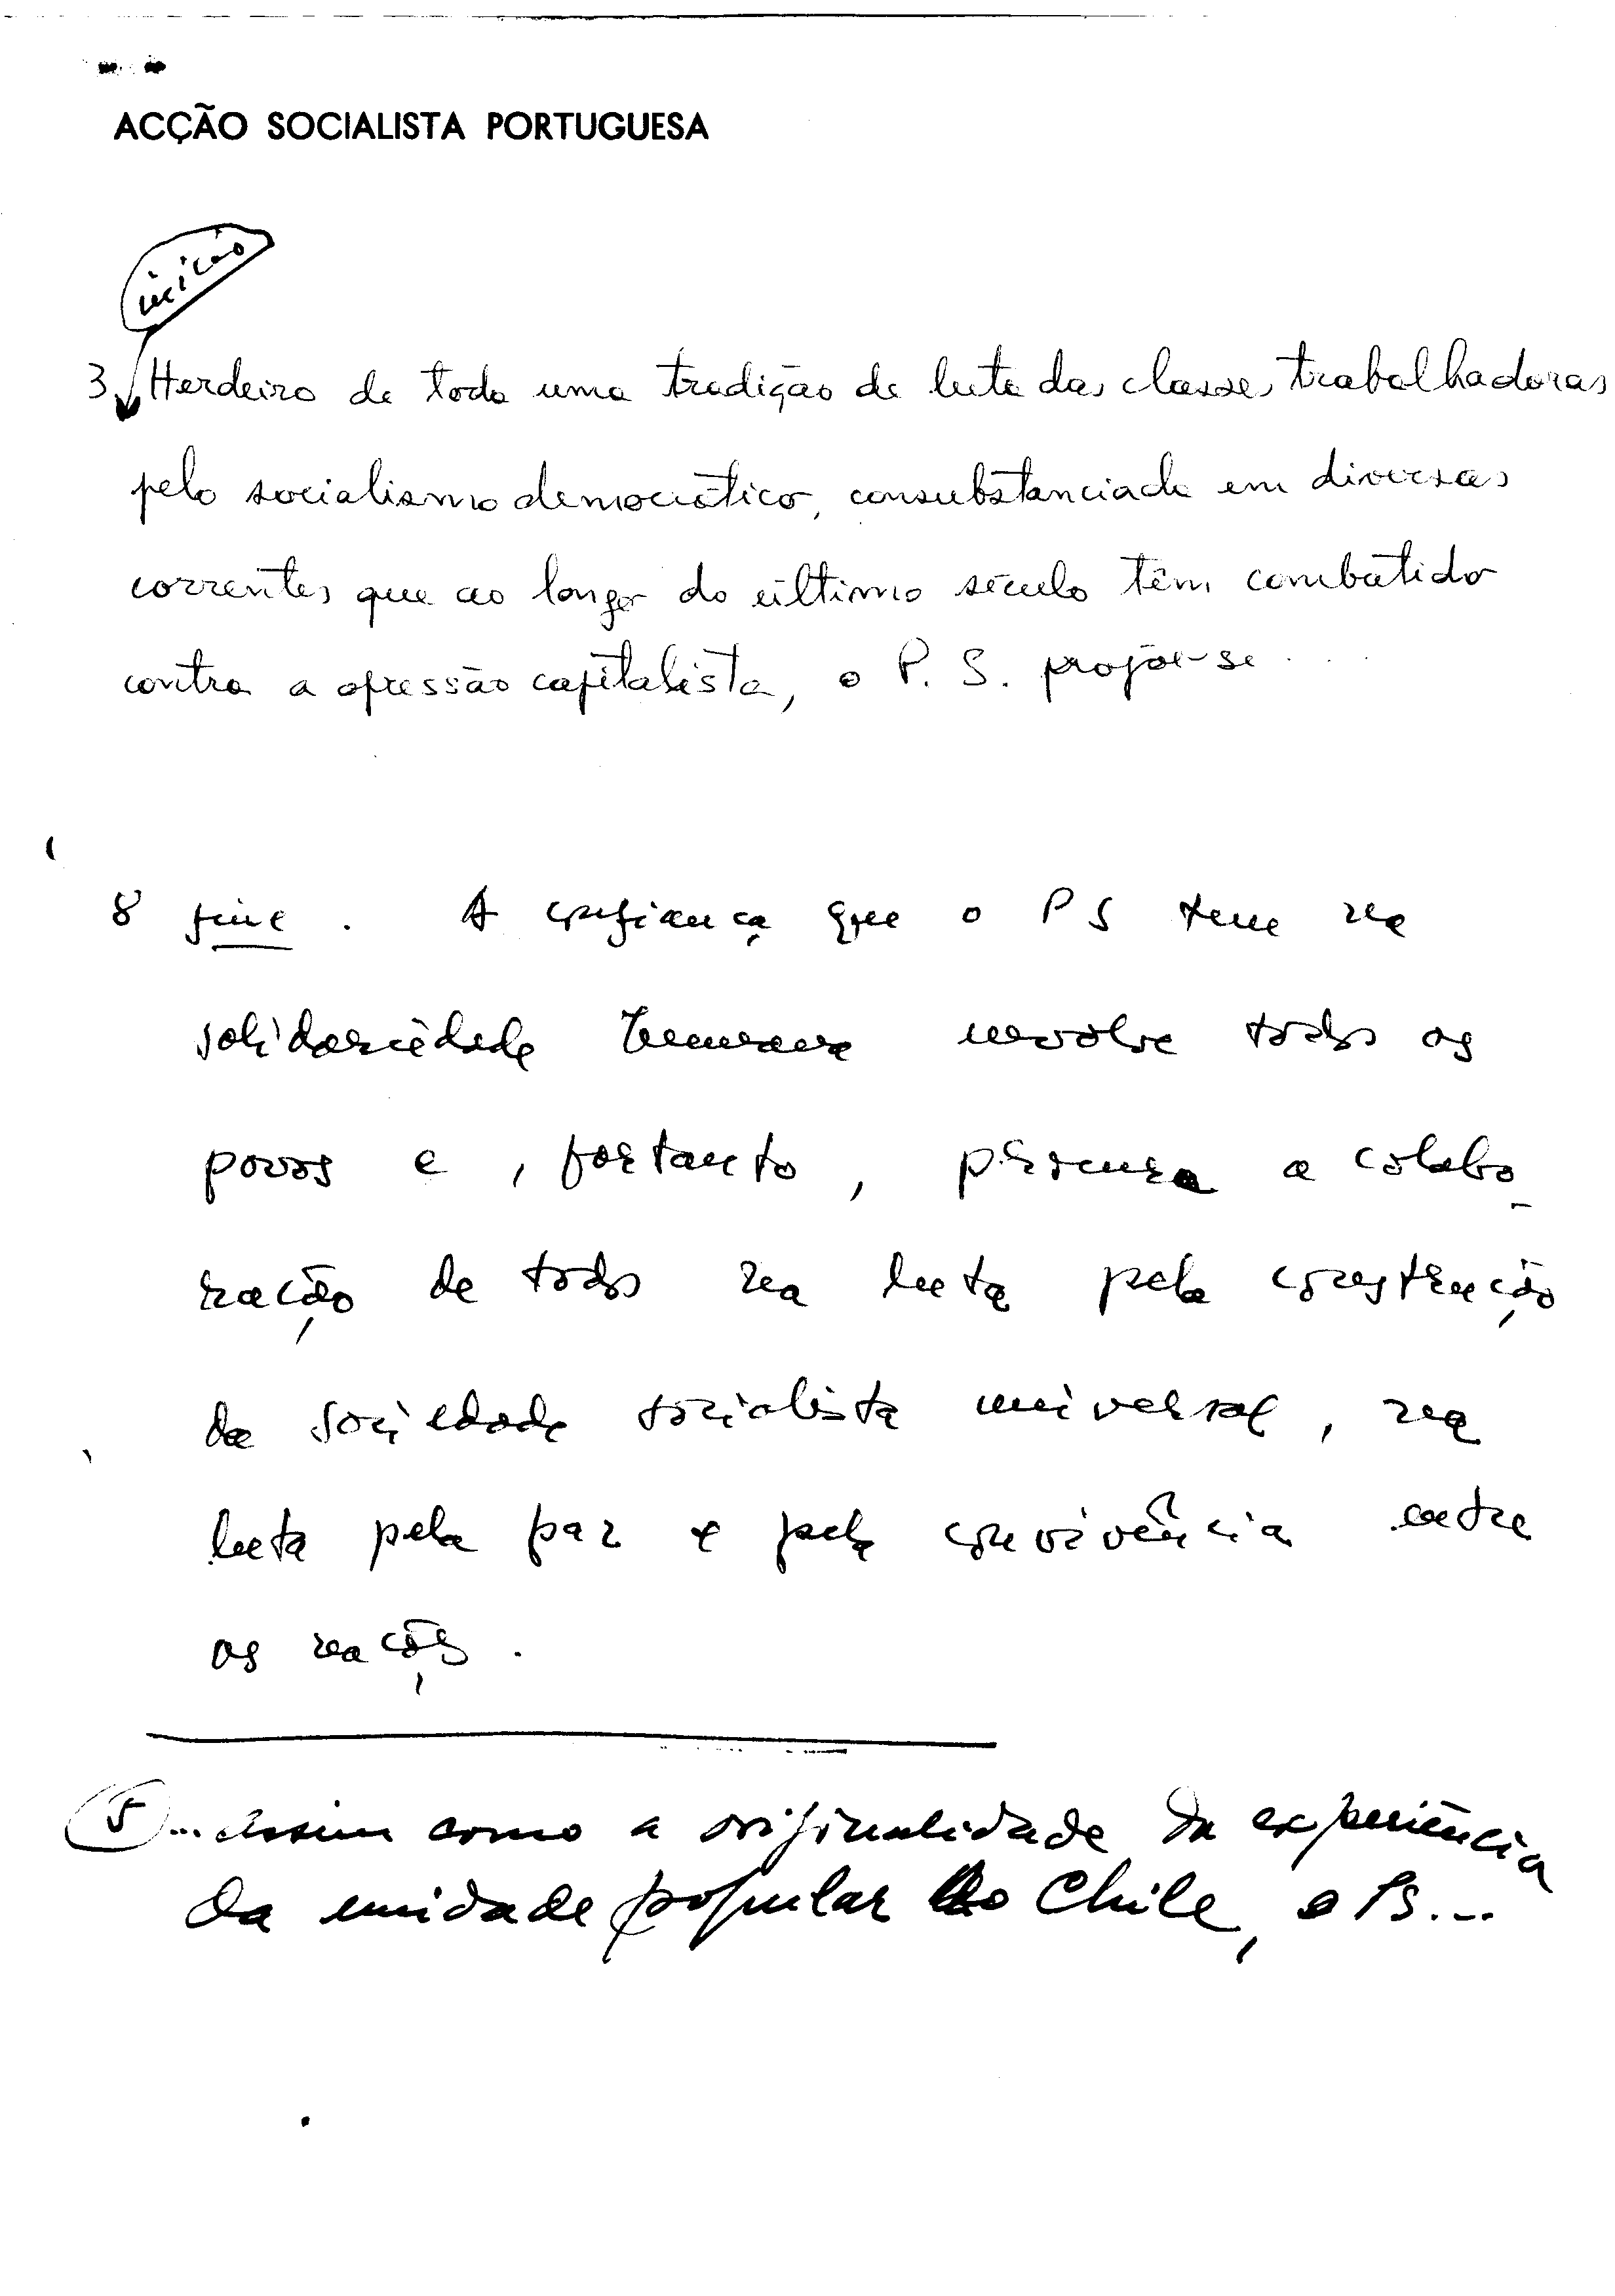 ACÇÃO SOCIALISTA PORTUGUESA
início
3 Herdeiro de toda uma tradição de luta das classes trabalhadoras
pelo socialismo democrático, consubstanciada em diversas
correntes que ao longo do último século têm combatido
contra a opressão capitalista, o P. S. propõe-se ....
8 fim . A confiança que o PS tem na
solidariedade humana envolve todos os
povos e, portanto, procura a colabo-
ração de todos na luta pela construção
da sociedade socialista universal, na
luta pela paz e pela convivência entre
as nações.
5 ... assim como a originalidade da experiência
da unidade popular do Chile, o PS...